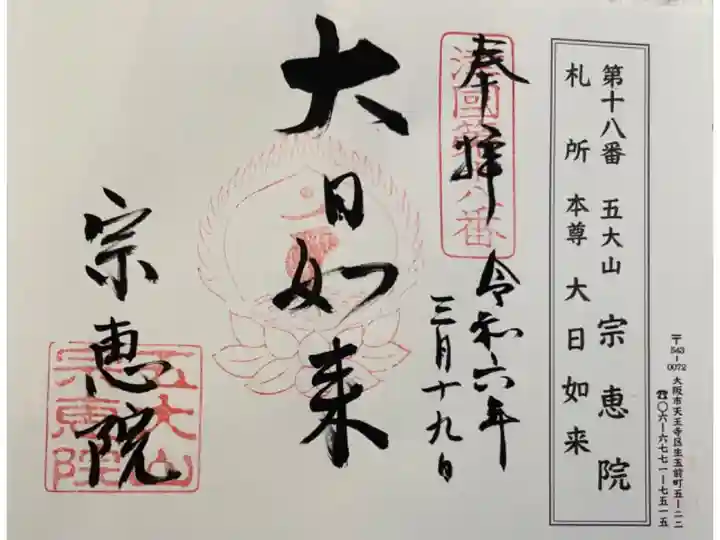 第十八番 五大山 宗恵院
札所本尊 大日如来
〒543-0072 大阪市天王寺区生玉前町五-二二
☎〇六-六七七一-七五一五
奉拝 令和六年
三月十九日
大日如来
宗恵院
五大山
宗恵院